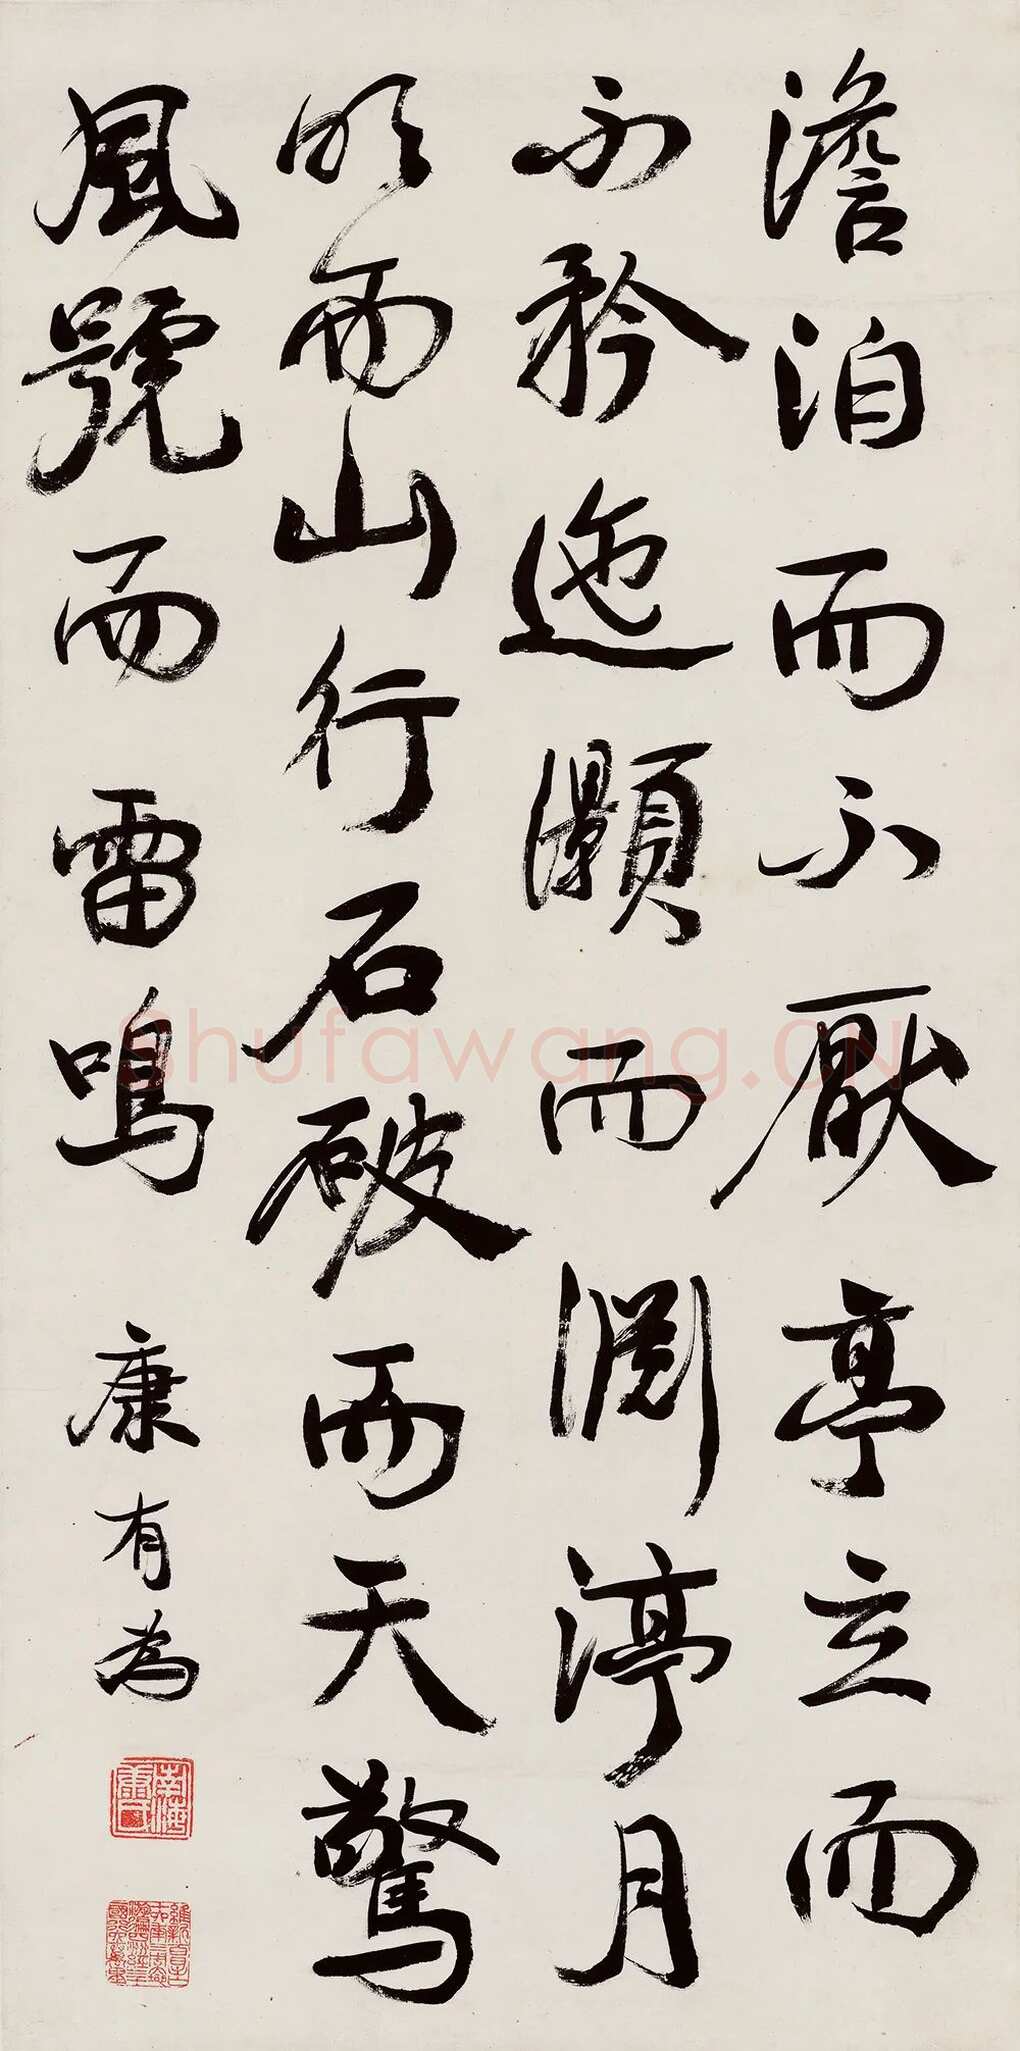 澹泊而不厭亭立而
不矜迤灝而淵渟月
明而山行石破而天驚
風號而雷鳴
康有為
南海康氏
Shufawang.CN